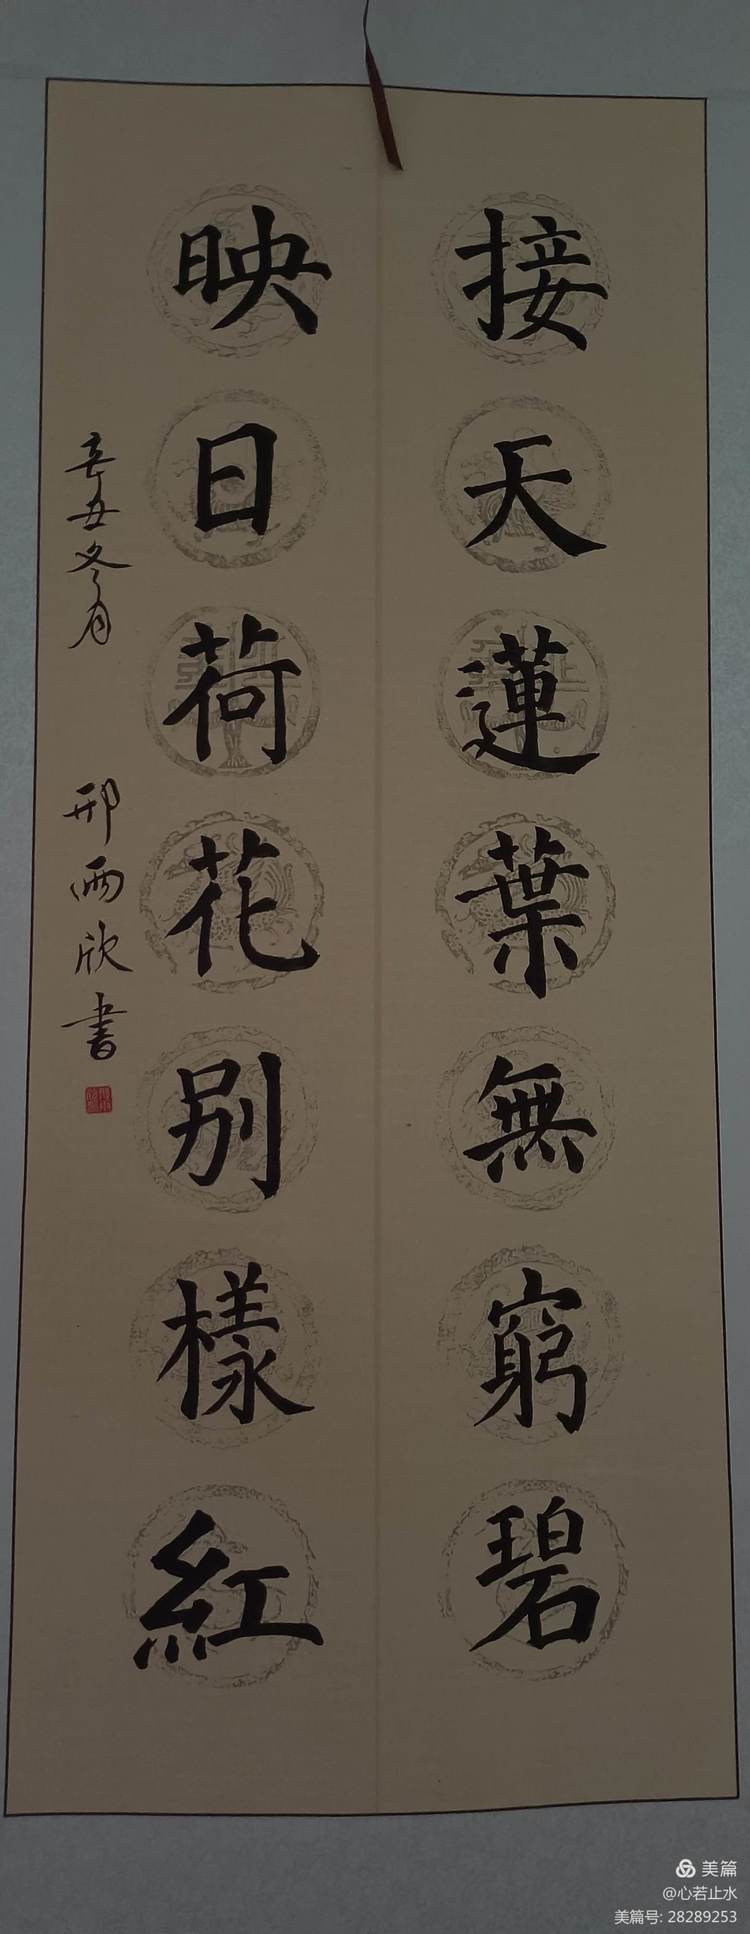 接天蓮葉無窮碧
映日荷花别樣紅
辛丑冬月
邢雨欣書
美篇
@心若止水
美篇号: 28289253